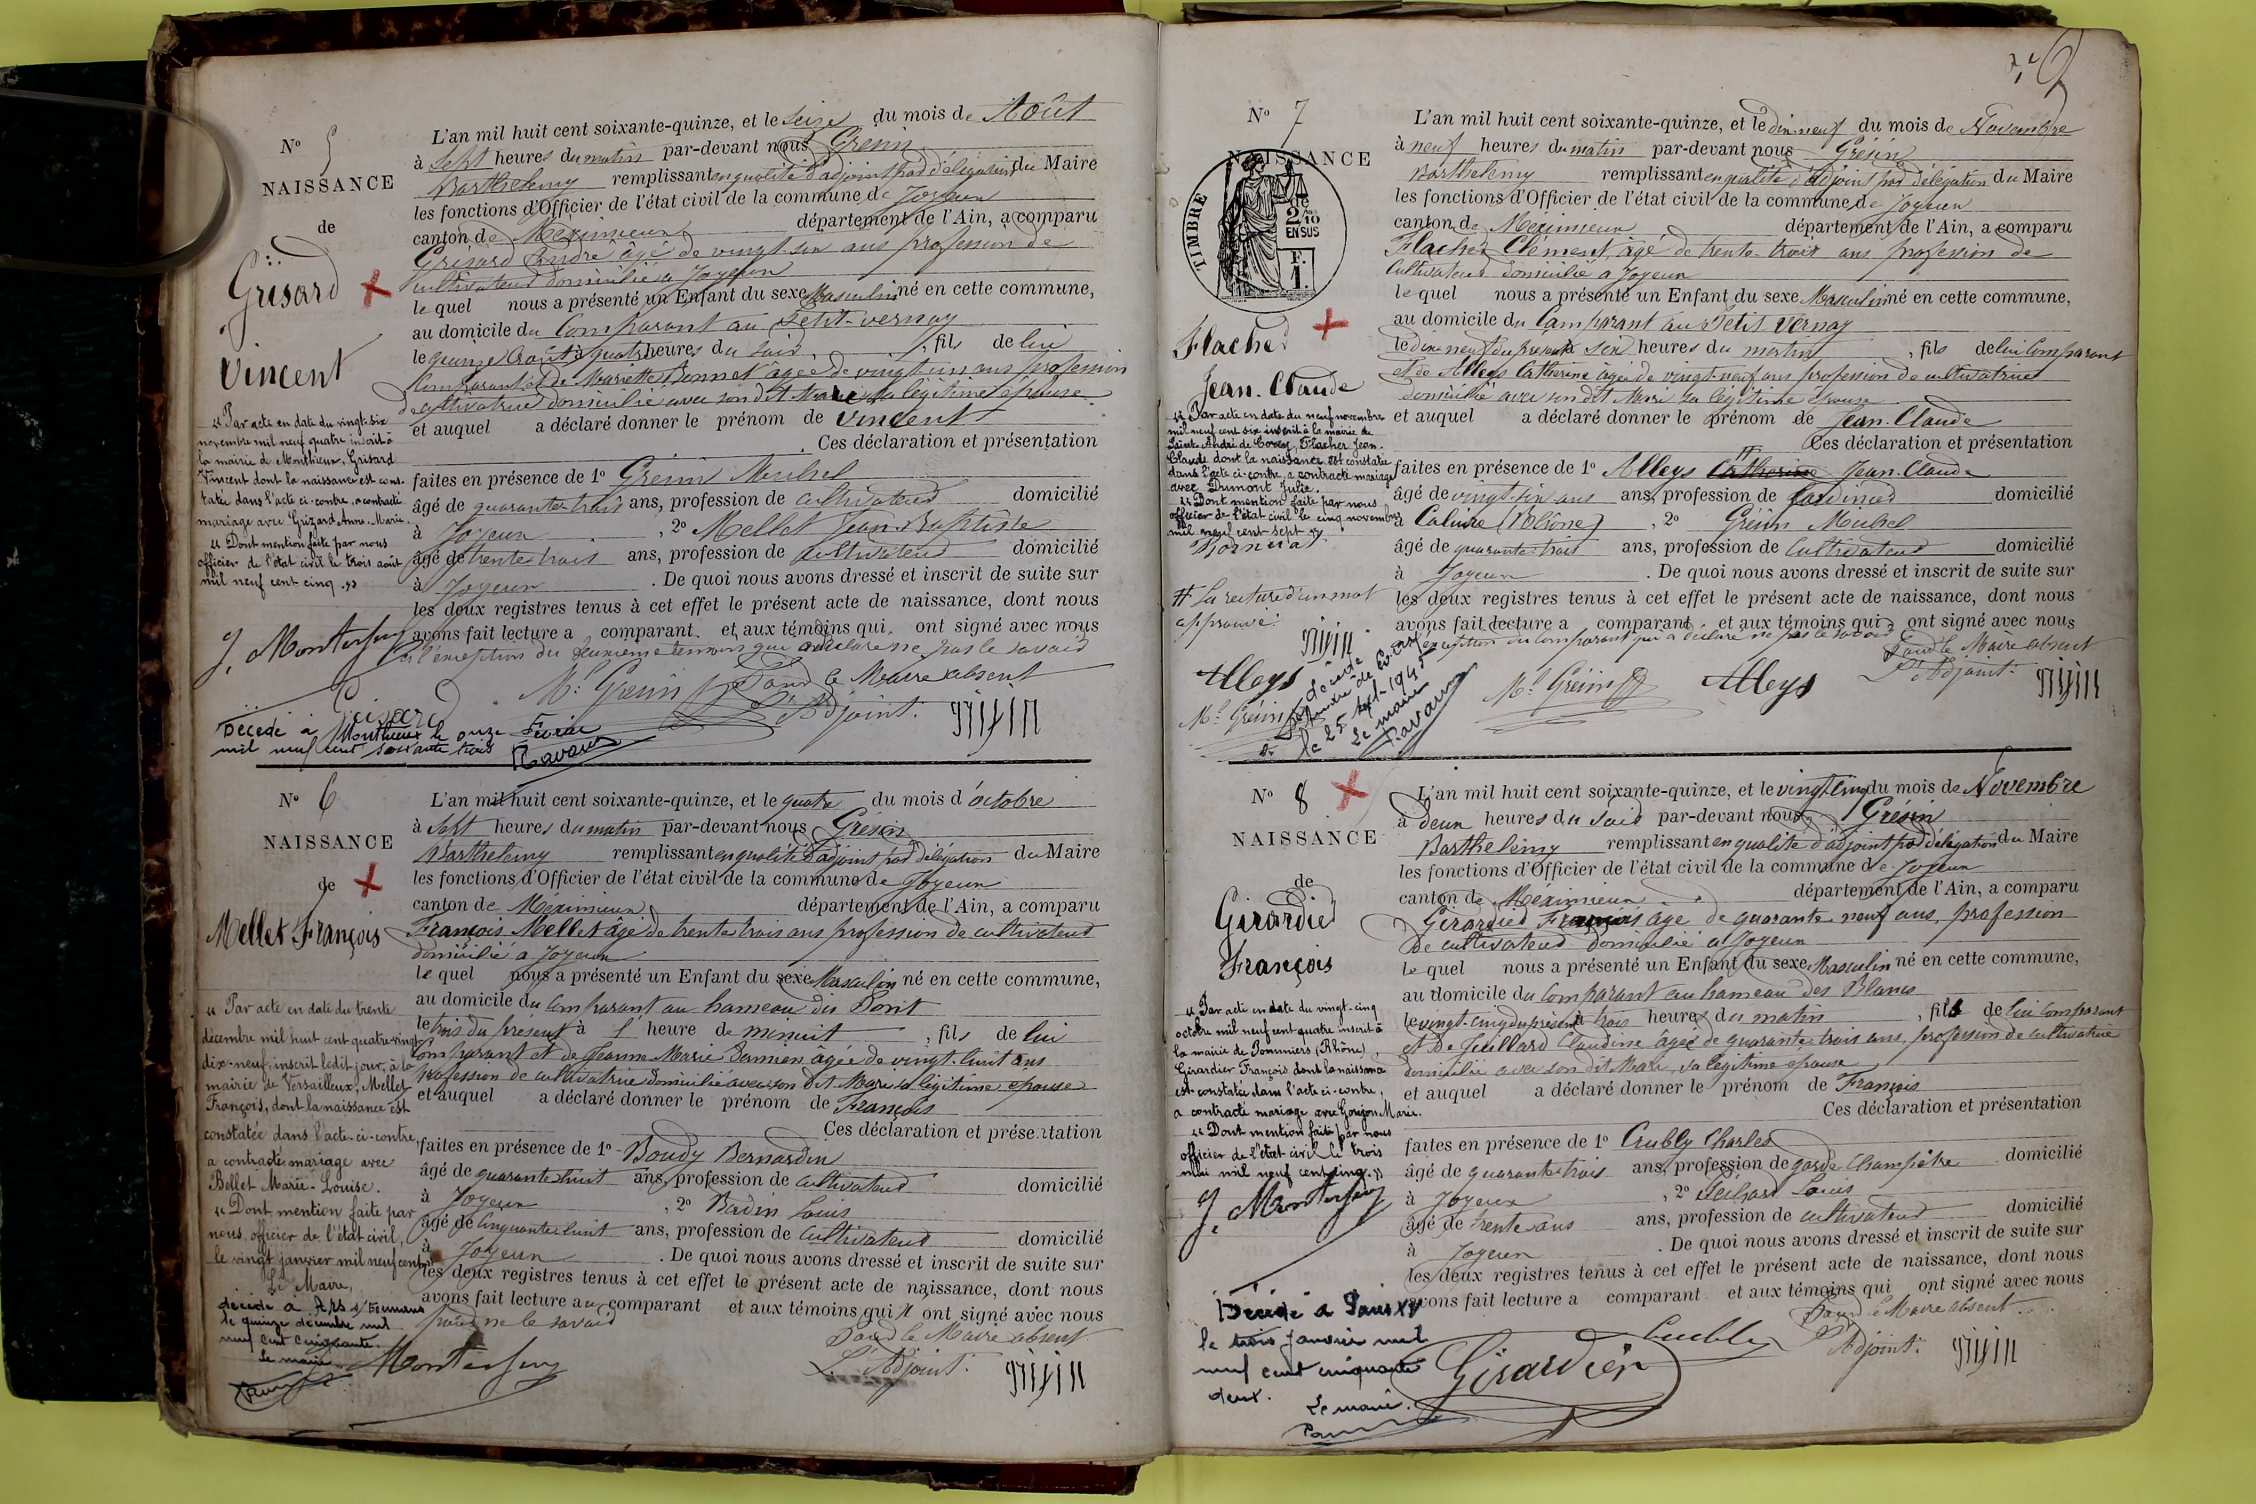 N° 5
NAISSANCE
de
Grisard
Vincent
L'an mil huit cent soixante-quinze, et le seize du mois de Août
à sept heures du matin par-devant nous Grésin
Barthelemy remplissant en qualité d'adjoint par délégation du Maire
les fonctions d'Officier de l'état civil de la commune de Joyeux
canton de Méximieux département de l'Ain, a comparu
Grisard André âgé de vingt six ans profession de
cultivateur domicilié à Joyeux
le quel nous a présenté un Enfant du sexe Masculin né en cette commune,
au domicile du Comparant au Petit-vernay
le quinze Août à quatre heures du soir, fils de lui
Comparant et de Mariette Bonnet âgée de vingt un ans profession
de cultivatrice domiciliée avec son dit Mari sa légitime épouse
et auquel a déclaré donner le prénom de Vincent
Ces déclaration et présentation
faites en présence de 1° Grésin Michel
âgé de quarante trois ans, profession de cultivateur domicilié
à Joyeux, 2° Mellet Jean Baptiste
âgé de trente trois ans, profession de cultivateur domicilié
à Joyeux. De quoi nous avons dressé et inscrit de suite sur
les deux registres tenus à cet effet le présent acte de naissance, dont nous
avons fait lecture a comparant et aux témoins qui ont signé avec nous
à l'exception du deuxième témoin qui a déclaré ne pas le savoir
M. Grésin Pour le Maire absent
L'Adjoint.
Grisard
« Par acte en date du vingt-six
novembre mil neuf quatre inscrit à
la mairie de Monthieux, Grisard
Vincent dont la naissance est cons-
tatée dans l'acte ci-contre, a contracté
mariage avec Grizard Anne-Marie.
« Dont mention faite par nous
officier de l'état civil le trois août
mil neuf cent cinq. »
Décédé à Monthieux le onze Février
mil neuf cent soixante trois
N° 6
NAISSANCE
de
Mellet François
L'an mil huit cent soixante-quinze, et le quatre du mois d'octobre
à sept heures du matin par-devant nous Grésin
Barthelemy remplissant en qualité d'adjoint par délégation du Maire
les fonctions d'Officier de l'état civil de la commune de Joyeux
canton de Meximieux département de l'Ain, a comparu
François Mellet âgé de trente trois ans profession de cultivateur
domicilié à Joyeux
le quel nous a présenté un Enfant du sexe Masculin né en cette commune,
au domicile du comparant au hameau du Pont
le trois du présent à l'heure de minuit, fils de lui
comparant et de Jeanne Marie âgée de vingt-huit ans
profession de cultivatrice domiciliée avec son dit Mari sa légitime épouse
et auquel a déclaré donner le prénom de François
Ces déclaration et présentation
faites en présence de 1° Boudy Bernardin
âgé de quarante huit ans, profession de cultivateur domicilié
à Joyeux, 2° Badin Louis
âgé de cinquante huit ans, profession de cultivateur domicilié
à Joyeux. De quoi nous avons dressé et inscrit de suite sur
les deux registres tenus à cet effet le présent acte de naissance, dont nous
avons fait lecture au comparant et aux témoins qui n'ont signé avec nous
pour ne le savoir
Pour le Maire absent
L'Adjoint.
« Par acte en date du trente
décembre mil huit cent quatre-vingt
dix-neuf, inscrit ledit jour, à la
mairie de Versailleux, Mellet
François, dont la naissance est
constatée dans l'acte ci-contre,
a contracté mariage avec
Bellet Marie-Louise.
« Dont mention faite par
nous officier de l'état civil,
le vingt janvier mil neuf cent
Le Maire,
décédé à Ars s/ Formans
le quinze décembre mil
neuf cent cinquante.
Le maire
N° 7
NAISSANCE
TIMBRE
2/10
EN SUS
F.
1.
Flacher
Jean-Claude
L'an mil huit cent soixante-quinze, et le dix-neuf du mois de Novembre
à neuf heures du matin par-devant nous Grésin
Barthelemy remplissant en qualité d'adjoint par délégation du Maire
les fonctions d'Officier de l'état civil de la commune de Joyeux
canton de Meximieux département de l'Ain, a comparu
Flacher Clément, âgé de trente-trois ans profession de
cultivateur domicilié à Joyeux
le quel nous a présenté un Enfant du sexe Masculin né en cette commune,
au domicile du Comparant au Petit Vernay
le dix-neuf du présent à six heures du matin, fils de lui Comparant
et de Alleys Catherine âgée de vingt-neuf ans profession de cultivatrice
domiciliée avec son dit Mari sa légitime épouse
et auquel a déclaré donner le prénom de Jean-Claude
Ces déclaration et présentation
faites en présence de 1° Alleys Catherine Jean-Claude
âgé de vingt-six ans ans, profession de Jardinier domicilié
à Caluire (Rhône), 2° Grésin Michel
âgé de quarante-trois ans, profession de Cultivateur domicilié
à Joyeux. De quoi nous avons dressé et inscrit de suite sur
les deux registres tenus à cet effet le présent acte de naissance, dont nous
avons fait lecture a comparant et aux témoins qui ont signé avec nous
à l'exception du comparant qui a déclaré ne pas le savoir
Pour le Maire absent
L'Adjoint.
Alleys M. Grésin Alleys
M. Grésin
« Par acte en date du neuf novembre
mil neuf cent six inscrit à la mairie de
Sainte André de Corcy, Flacher Jean-
Claude dont la naissance est constatée
dans l'acte ci-contre, a contracté mariage
avec Dumont Julie.
« Dont mention faite par nous
officier de l'état civil le cinq novembre
mil neuf cent sept »
# La rature d'un mot
approuvé
décédé
le 25 sept 1945
Le maire
N° 8
NAISSANCE
de
Girardier
François
L'an mil huit cent soixante-quinze, et le vingt-cinq du mois de Novembre
à deux heures du soir par-devant nous Grésin
Barthelemy remplissant en qualité d'adjoint par délégation du Maire
les fonctions d'Officier de l'état civil de la commune de Joyeux
canton de Méximieux département de l'Ain, a comparu
Girardier François âgé de quarante neuf ans, profession
de cultivateur domicilié à Joyeux
le quel nous a présenté un Enfant du sexe Masculin né en cette commune,
au domicile du comparant au hameau des Blancs
le vingt-cinq du présent à trois heures du matin, fils de lui comparant
et de Juillard Claudine âgée de quarante trois ans, profession de cultivatrice
domiciliée avec son dit Mari, sa légitime épouse
et auquel a déclaré donner le prénom de François
Ces déclaration et présentation
faites en présence de 1° Cubly Charles
âgé de quarante trois ans, profession de garde Champêtre domicilié
à Joyeux, 2° Louis
âgé de trente ans ans, profession de cultivateur domicilié
à Joyeux. De quoi nous avons dressé et inscrit de suite sur
les deux registres tenus à cet effet le présent acte de naissance, dont nous
avons fait lecture a comparant et aux témoins qui ont signé avec nous
Pour le Maire absent
L'Adjoint.
Cubly
Girardier
« Par acte en date du vingt-cinq
octobre mil neuf cent quatre inscrit à
la mairie de Pommiers (Rhône),
Girardier François dont la naissance
est constatée dans l'acte ci-contre,
a contracté mariage avec Goujon Marie.
« Dont mention faite par nous
officier de l'état civil le trois
mai mil neuf cent cinq. »
Décédé à Paris XV
le trois Janvier mil
neuf cent cinquante
deux.
Le maire.